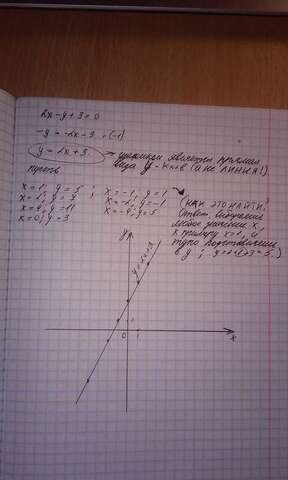 2x-y+3=0
-y=-2x-3 |·(-1)
y=2x+3. => графиком является прямая
вида y=kx+b (а не линия!).
пусть
x=1; y=5 ; x=-1; y=1
x=2; y=7 x=-2; y=-1
x=4; y=11 x=-4; y=-5
x=0; y=3
(КАК ЭТО НАЙТИ?
Ответ:
любое значение x,
к примеру x=1, и
тупо подставляем
в y ; y=2·1+3=5.)
y
y=2x+3
1
0 1 x